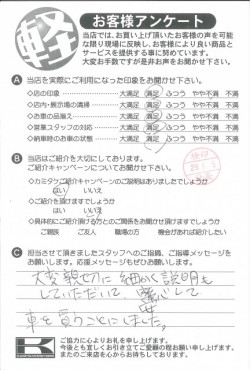 軽
お客様アンケート
当店では、お買い上げ頂いたお客様の声を可能
な限り現場に反映し、お客様により良い商品と
サービスを提供する事に努めています。
大変お手数ですが是非お声をお聞かせ下さい。
A 当店を実際にご利用になった印象をお聞かせ下さい。
◇店の印象 大満足 満足 ふつう やや不満 不満
◇店内・展示場の清掃 大満足 満足 ふつう やや不満 不満
◇お車の品揃え 大満足 満足 ふつう やや不満 不満
◇営業スタッフの対応 大満足 満足 ふつう やや不満 不満
◇納車時のお車の状態 大満足 満足 ふつう やや不満 不満
B 当店はご紹介を大切にしております。
ご紹介キャンペーンについてお聞かせ下さい。
◇カミタケご紹介キャンペーンのご説明はありましたでしょうか
はい いいえ
◇ご紹介を頂けますでしょうか
はい いいえ
◇具体的にご紹介頂ける方とのご関係をお聞かせ頂けますでしょうか
ご親兄 ご友人 職場の方 機会があれば紹介したい
C 担当させて頂きましたスタッフへのご指摘、ご指導メッセージを
お願いします。応援メッセージもぜひお願いします。
大変親切に細かく説明も
していただいて、安心して
車を買うことにしました。
K
ご協力に心よりお礼を申し上げます。
今後とも宜しくお引き立てご愛顧の程お願い申し上げます。
またのご来店を心からお待ちしております。